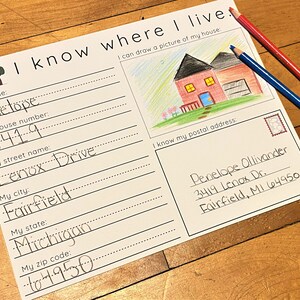 I know where I live.
I can draw a picture of my house:
nelope
ouse number:
419
street name:
enox Drive
My city:
Fairfield
My state:
Michigan
My zip code:
64950
I know my postal address:
Penelope Ollivander
3419 Lenox Dr.
Fairfield, MI 64950